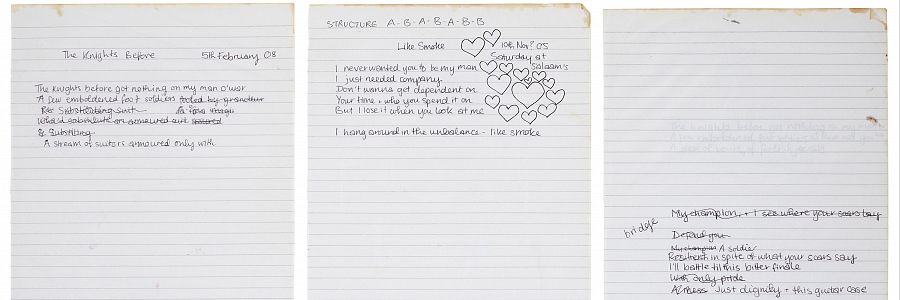 The Knights Before 5th February 08
The Knights before got nothing on my man o'war
A few emboldened foot soldiers fooled by grandeur
Substituting suit
Would substitute an armoured suit
& Substitu
A stream of suitors armoured only with
STRUCTURE A-B-A-B-A-B-B
Like Smoke 10th Nov? 05
Saturday at
Salaam's
I never wanted you to be my man
I just needed company
Don't wanna get dependent on
Your time + who you spend it on
But I lose it when you look at me
I hang around in the unbalance - like smoke
The knights before got nothing on my man
My champion, + I see where your scars lay
bridge
Defend you
My champion A soldier
Resilient in spite of what your scars say
I'll battle til this bitter finale
With only pride
Just dignity + this guitar case